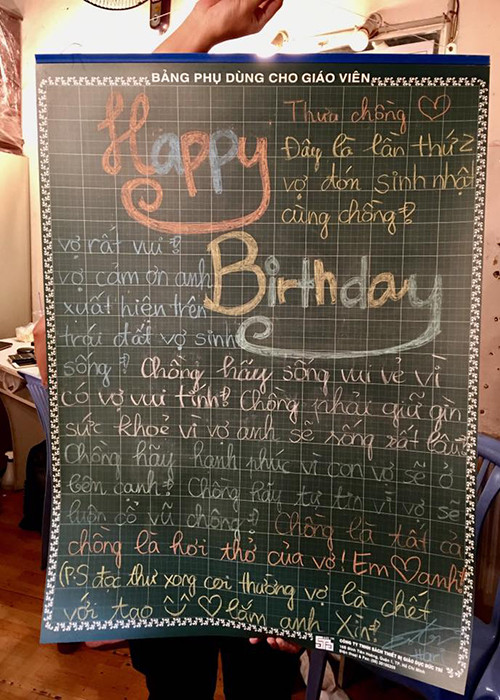 BẢNG PHỤ DÙNG CHO GIÁO VIÊN
Happy
Birthday
Thưa chồng ♡
Đây là lần thứ 2
vợ đón sinh nhật
cùng chồng!
vợ rất vui!
vợ cảm ơn anh
xuất hiện trên
trái đất vợ sinh
sống! Chồng hãy sống vui vẻ vì
có vợ vui tính! Chồng phải giữ gìn
sức khoẻ vì vợ anh sẽ sống rất lâu!
Chồng hãy hạnh phúc vì con vợ sẽ ở
bên cạnh! Chồng hãy tự tin vì vợ sẽ
luôn cổ vũ chồng! Chồng là tất cả
chồng là hơi thở của vợ! Em ♡ anh!
(P.S đọc thư xong coi thường vợ là chết
với tao ♡ lắm anh Xìn!
CÔNG TY TNHH SÁCH THIẾT BỊ GIÁO DỤC ĐỨC TRÍ